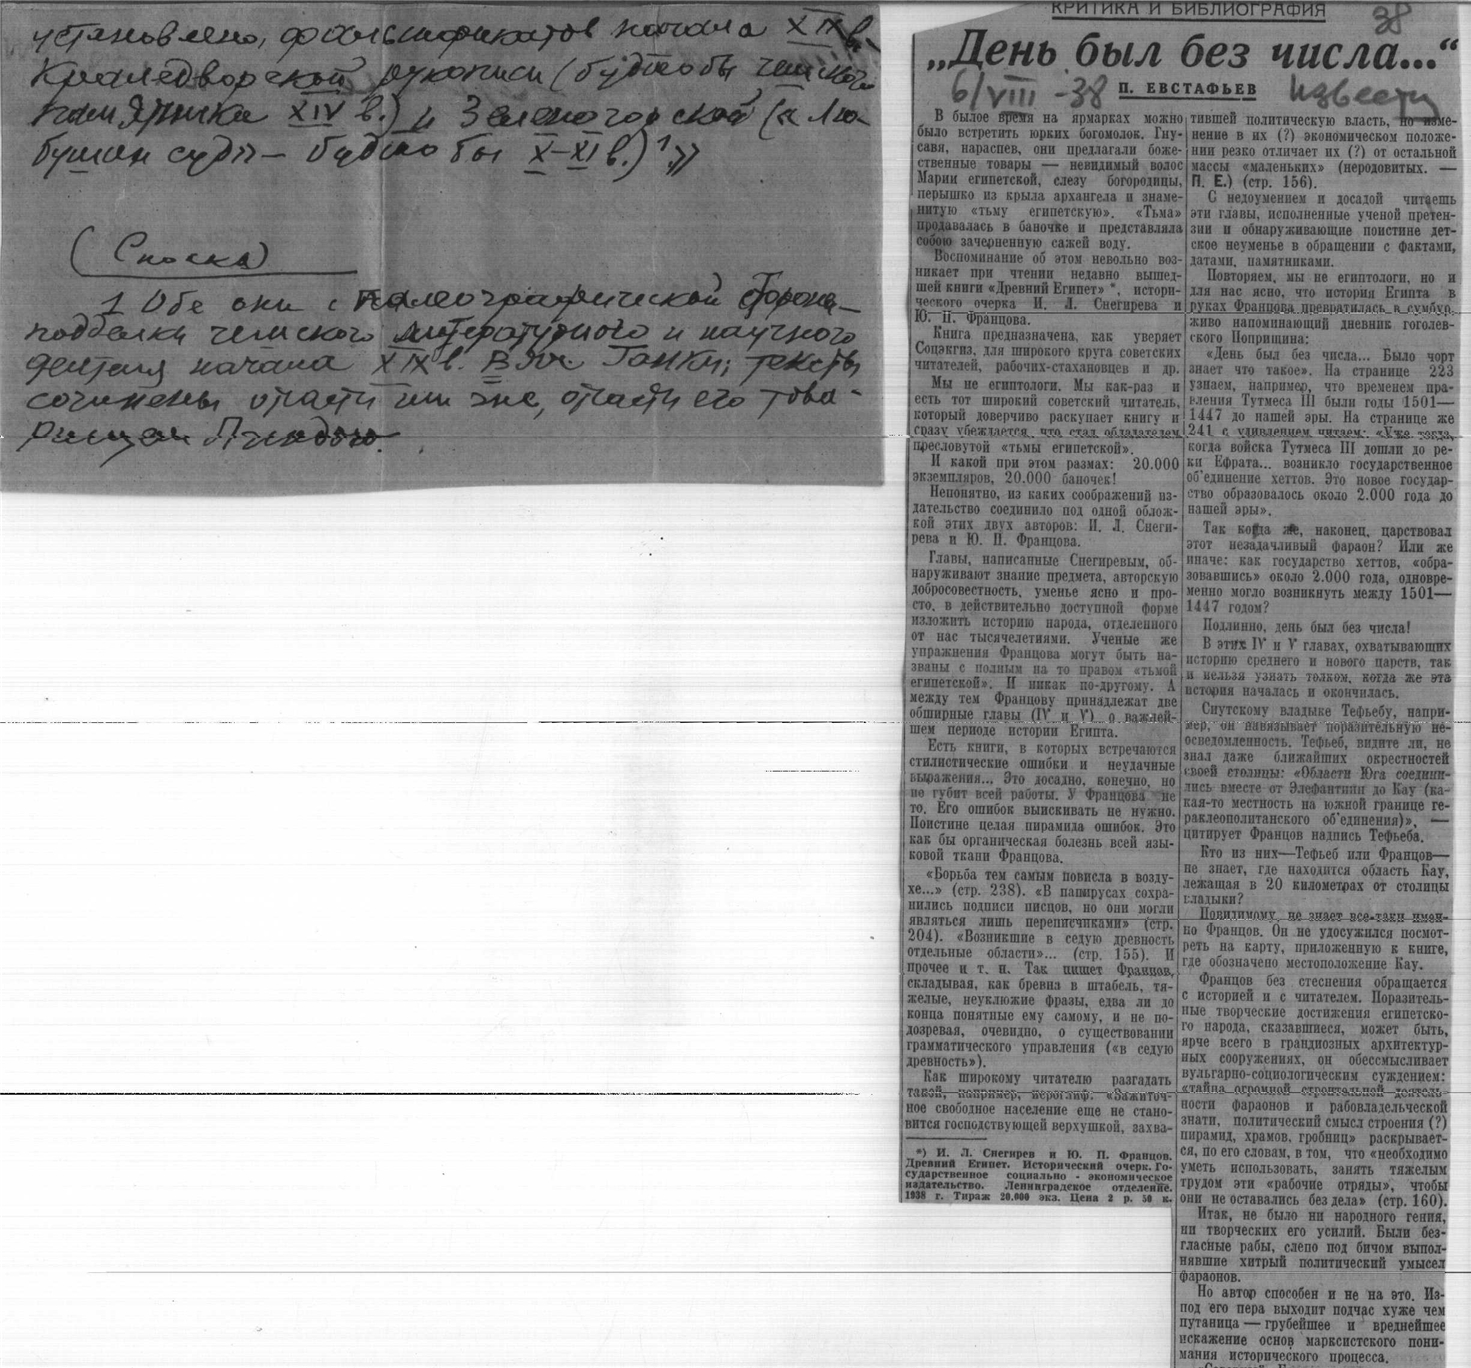 установлено, фальсификатов начала XIX в.
Краледворской рукописи (будто бы чешского
памятника XIV в.) и Зеленогорской («Лю-
бушин суд» — будто бы X–XI в.)¹.»
(Сноска)
1 Обе они с палеографической стороны —
подделки чешского литературного и научного
деятеля начала XIX в. Вяч. Ганки; тексты
сочинены отчасти им же, отчасти его това-
рищем Линдою.
КРИТИКА И БИБЛИОГРАФИЯ
38
„День был без числа...“
6/VIII -38
П. ЕВСТАФЬЕВ
Известия
В былое время на ярмарках можно
было встретить юрких богомолок. Гну-
савя, нараспев, они предлагали боже-
ственные товары — невидимый волос
Марии египетской, слезу богородицы,
перышко из крыла архангела и знаме-
нитую «тьму египетскую». «Тьма»
продавалась в баночке и представляла
собою зачерненную сажей воду.
Воспоминание об этом невольно воз-
никает при чтении недавно вышед-
шей книги «Древний Египет» *, истори-
ческого очерка И. Л. Снегирева и
Ю. П. Францова.
Книга предназначена, как уверяет
Соцэкгиз, для широкого круга советских
читателей, рабочих-стахановцев и др.
Мы не египтологи. Мы как-раз и
есть тот широкий советский читатель,
который доверчиво раскупает книгу и
сразу убеждается, что стал обладателем
пресловутой «тьмы египетской».
И какой при этом размах: 20.000
экземпляров, 20.000 баночек!
Непонятно, из каких соображений из-
дательство соединило под одной облож-
кой этих двух авторов: И. Л. Снеги-
рева и Ю. П. Францова.
Главы, написанные Снегиревым, об-
наруживают знание предмета, авторскую
добросовестность, уменье ясно и про-
сто, в действительно доступной форме
изложить историю народа, отделенного
от нас тысячелетиями. Ученые же
упражнения Францова могут быть на-
званы с полным на то правом «тьмой
египетской». И никак по-другому. А
между тем Францову принадлежат две
обширные главы (IV и V) о важней-
шем периоде истории Египта.
Есть книги, в которых встречаются
стилистические ошибки и неудачные
выражения... Это досадно, конечно, но
не губит всей работы. У Францова не
то. Его ошибок выискивать не нужно.
Поистине целая пирамида ошибок. Это
как бы органическая болезнь всей язы-
ковой ткани Францова.
«Борьба тем самым повисла в возду-
хе...» (стр. 238). «В папирусах сохра-
нились подписи писцов, но они могли
являться лишь переписчиками» (стр.
204). «Возникшие в седую древность
отдельные области»... (стр. 155). И
прочее и т. п. Так пишет Францов,
складывая, как бревна в штабель, тя-
желые, неуклюжие фразы, едва ли до
конца понятные ему самому, и не по-
дозревая, очевидно, о существовании
грамматического управления («в седую
древность»).
Как широкому читателю разгадать
такой, например, иероглиф: «Зажиточ-
ное свободное население еще не стано-
вится господствующей верхушкой, захва-
*) И. Л. Снегирев и Ю. П. Францов.
Древний Египет. Исторический очерк. Го-
сударственное социально - экономическое
издательство. Ленинградское отделение.
1938 г. Тираж 20.000 экз. Цена 2 р. 50 к.
тившей политическую власть, но изме-
нение в их (?) экономическом положе-
нии резко отличает их (?) от остальной
массы «маленьких» (неродовитых. —
П. Е.) (стр. 156).
С недоумением и досадой читаешь
эти главы, исполненные ученой претен-
зии и обнаруживающие поистине дет-
ское неуменье в обращении с фактами,
датами, памятниками.
Повторяем, мы не египтологи, но и
для нас ясно, что история Египта в
руках Францова превратилась в сумбур,
живо напоминающий дневник гоголев-
ского Поприщина:
«День был без числа... Было чорт
знает что такое». На странице 223
узнаем, например, что временем пра-
вления Тутмеса III были годы 1501—
1447 до нашей эры. На странице же
241 с удивлением читаем: «Уже тогда,
когда войска Тутмеса III дошли до ре-
ки Ефрата... возникло государственное
об'единение хеттов. Это новое государ-
ство образовалось около 2.000 года до
нашей эры».
Так когда же, наконец, царствовал
этот незадачливый фараон? Или же
иначе: как государство хеттов, «обра-
зовавшись» около 2.000 года, одновре-
менно могло возникнуть между 1501—
1447 годом?
Подлинно, день был без числа!
В этих IV и V главах, охватывающих
историю среднего и нового царств, так
и нельзя узнать толком, когда же эта
история началась и окончилась.
Сиутскому владыке Тефьебу, напри-
мер, он навязывает поразительную не-
осведомленность. Тефьеб, видите ли, не
знал даже ближайших окрестностей
своей столицы: «Области Юга соедини-
лись вместе от Элефантини до Кау (ка-
кая-то местность на южной границе ге-
раклеополитанского об'единения)», —
цитирует Францов надпись Тефьеба.
Кто из них—Тефьеб или Францов—
не знает, где находится область Кау,
лежащая в 20 километрах от столицы
владыки?
Повидимому, не знает все-таки имен-
но Францов. Он не удосужился посмот-
реть на карту, приложенную к книге,
где обозначено местоположение Кау.
Францов без стеснения обращается
с историей и с читателем. Поразитель-
ные творческие достижения египетско-
го народа, сказавшиеся, может быть,
ярче всего в грандиозных архитектур-
ных сооружениях, он обессмысливает
вульгарно-социологическим суждением:
«тайна огромной строительной деятель-
ности фараонов и рабовладельческой
знати, политический смысл строения (?)
пирамид, храмов, гробниц» раскрывает-
ся, по его словам, в том, что «необходимо
уметь использовать, занять тяжелым
трудом эти «рабочие отряды», чтобы
они не оставались без дела» (стр. 160).
Итак, не было ни народного гения,
ни творческих его усилий. Были без-
гласные рабы, слепо под бичом выпол-
нявшие хитрый политический умысел
фараонов.
Но автор способен и не на это. Из-
под его пера выходит подчас хуже чем
путаница — грубейшее и вреднейшее
искажение основ марксистского пони-
мания исторического процесса.